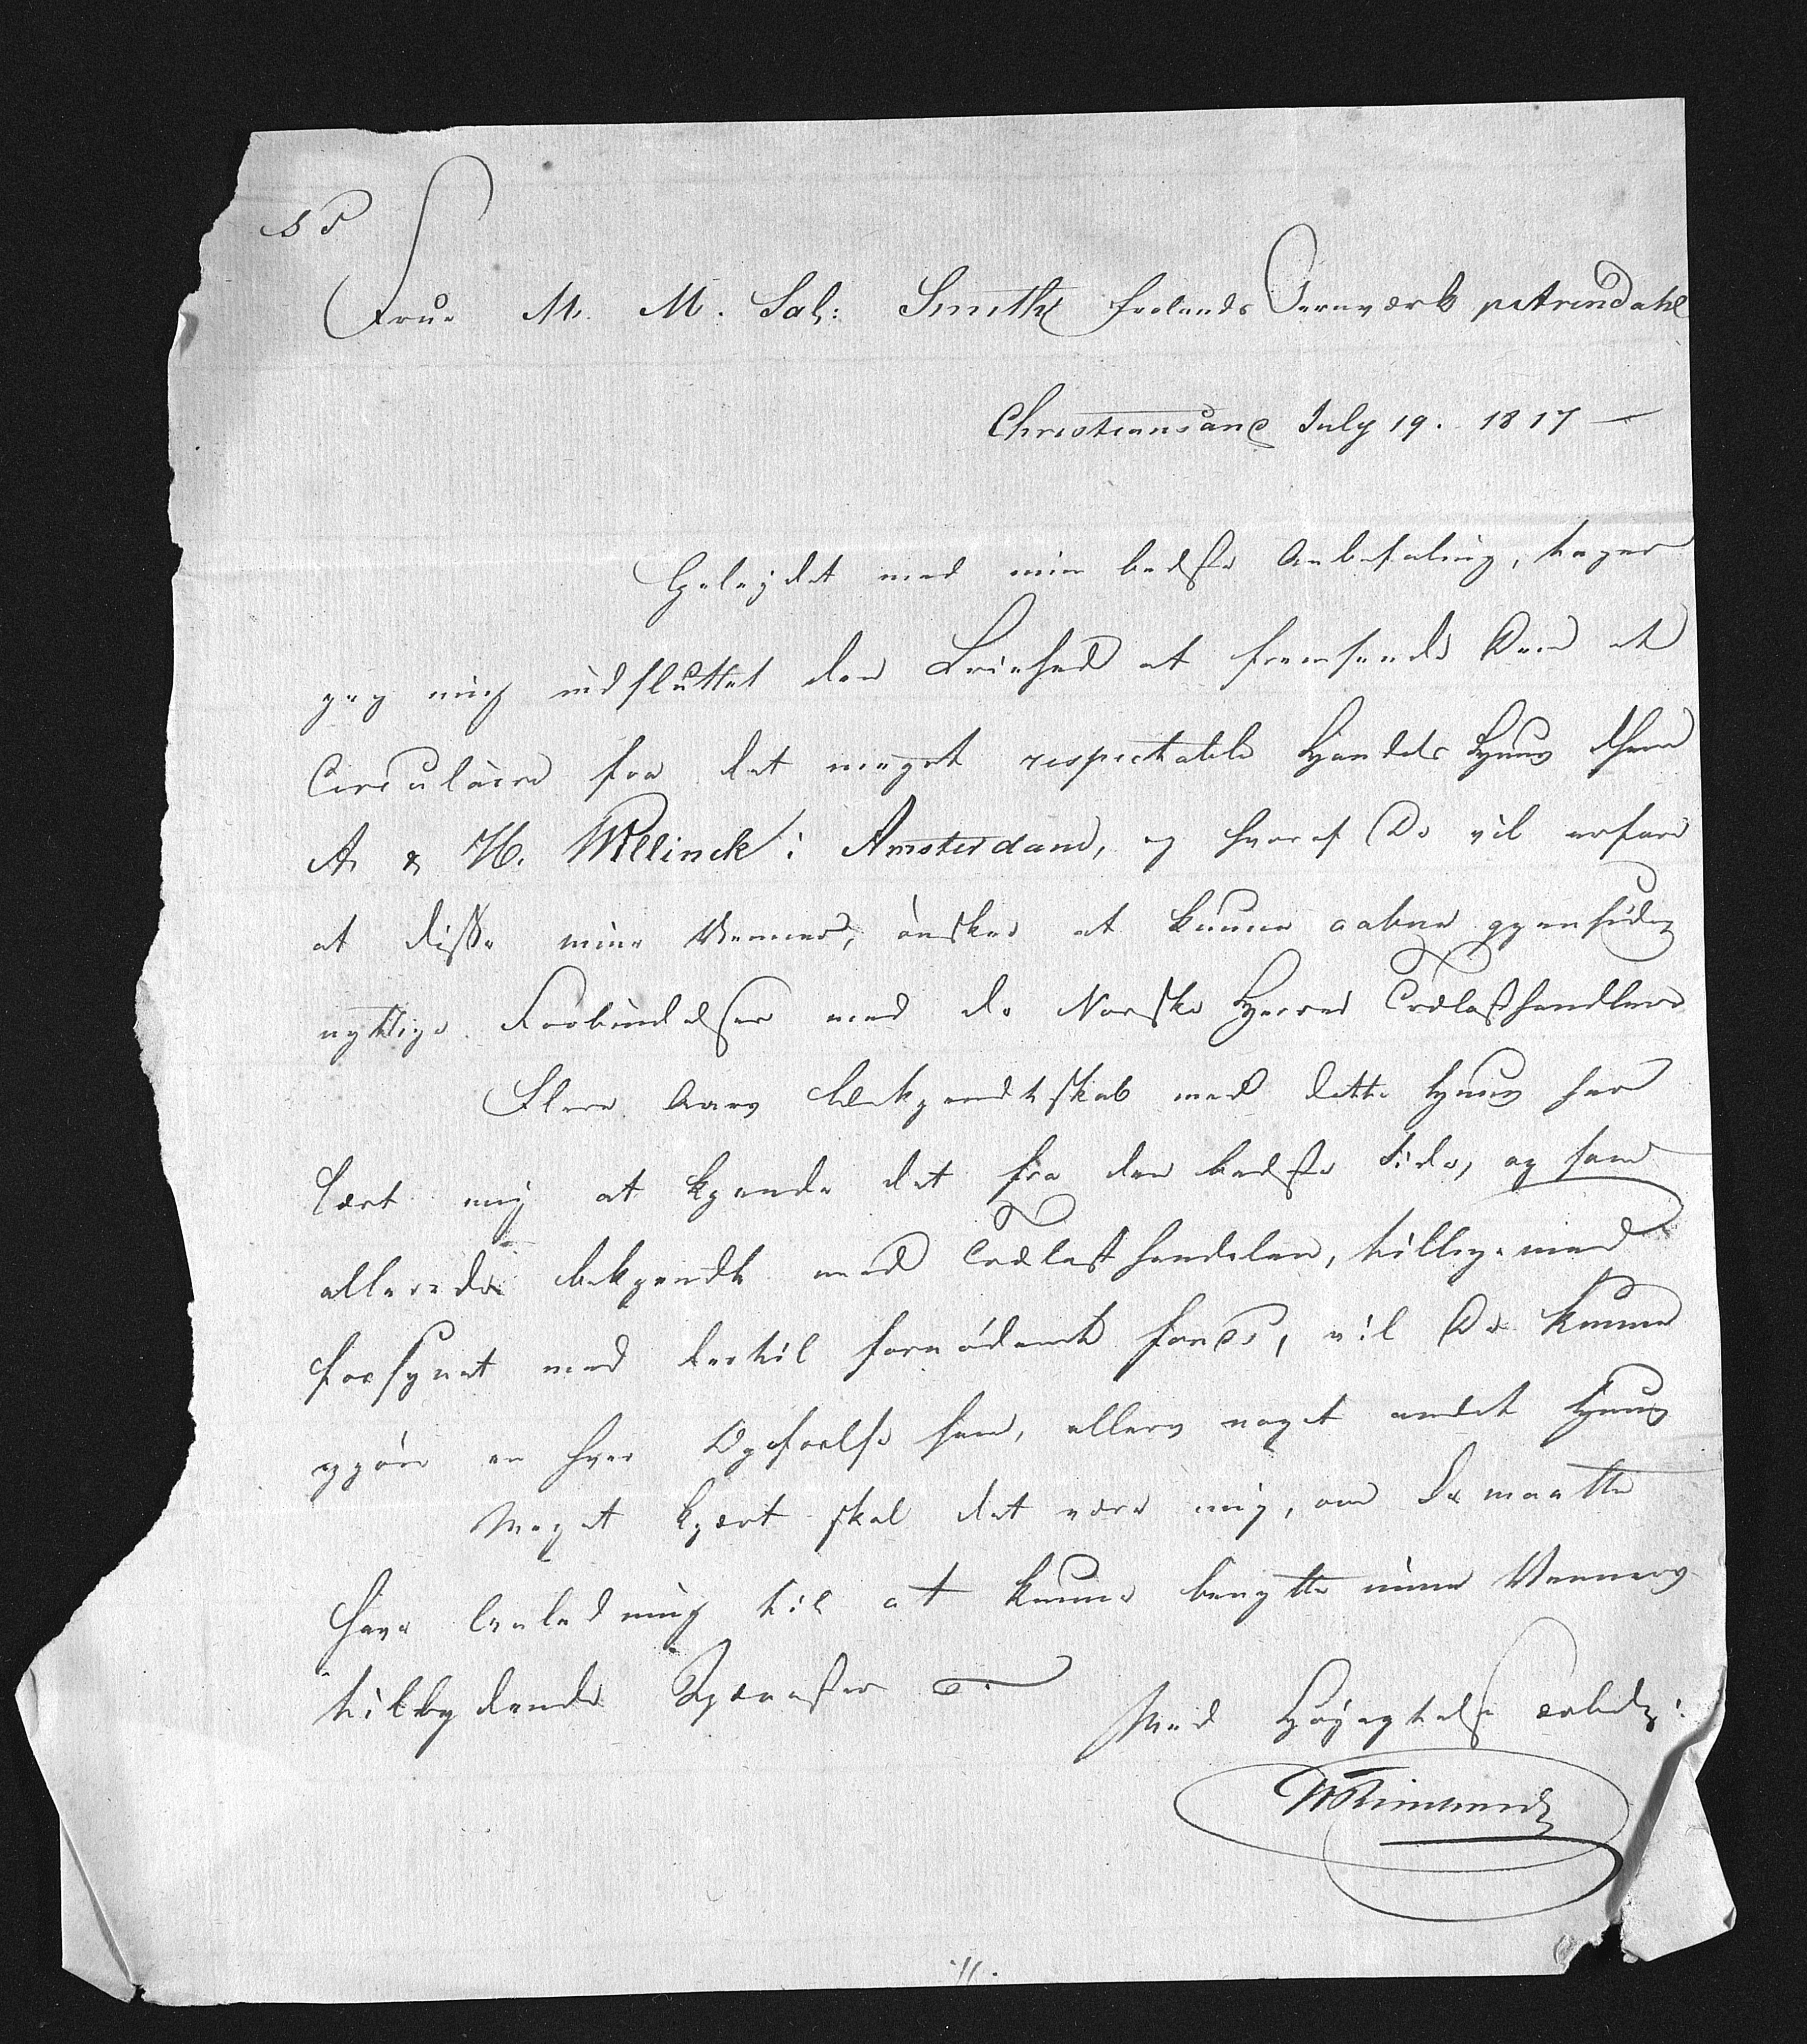 S T
Frue M. M. Sal: Smith Frolands Jernværk pr Arendahl
Christiansand July 19. 1817 —
Geleydet med min bedste Anbefaling, tager
jeg mig indsluttet den Friehed at fremsende Dem et
Circulaire fra det meget respectable Handels Huus Hrr
A & H. Willinck i Amsterdam, og hvoraf De vil erfare
at disse mine Venner, ønsker at kunne aabne gjensidig
nyttige Forbindelser med de Norske Herrer Trælasthandlere
Flere Aars Bekjendtskab med dette Huus har
lært mig at kjende det fra den bedste Side, og som
allerede bekjendt med Trælasthandelen, tilligemed
forsynet med dertil fornødent fonds, vil De kunne
gjøre en hver Opofrelse som, ellers noget andet Huus
Meget kjært skal det være mig, om De maatte
have Anledning til at kunne benytte mine Venners
tilbydende Tjenester
Med Høyagtelse ærbdg: